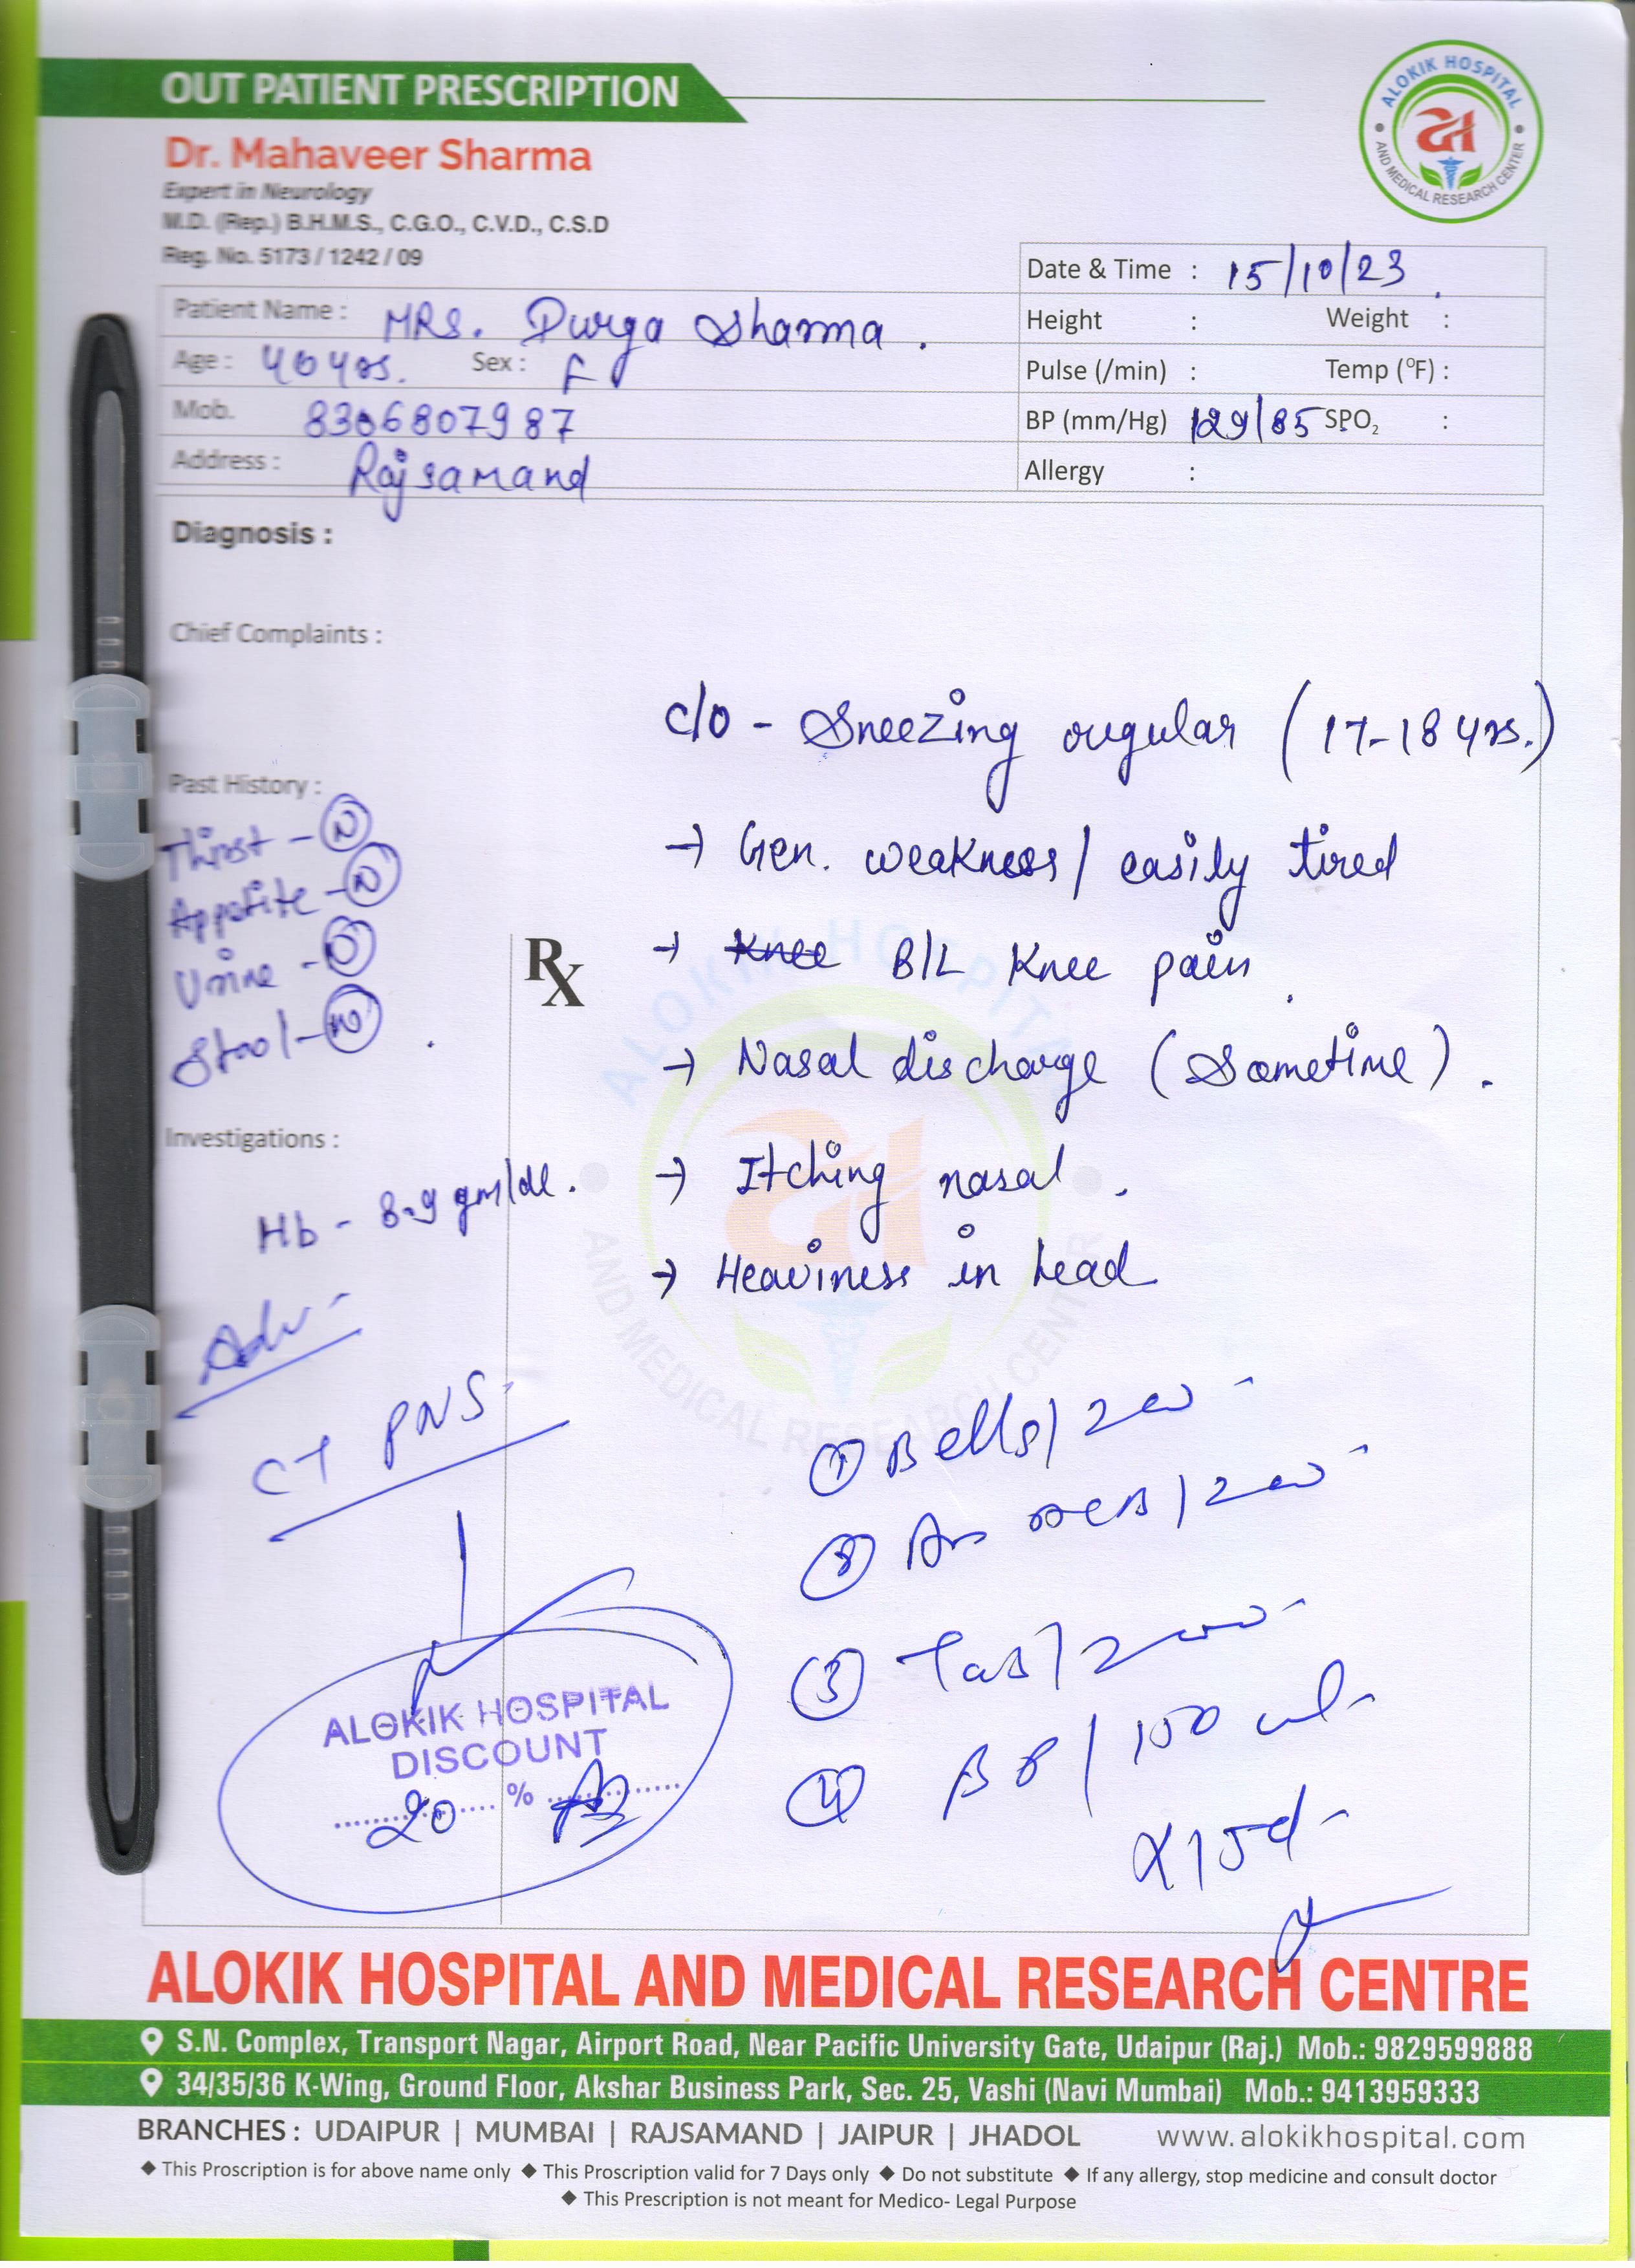 OUT PATIENT PRESCRIPTION
ALOKIK HOSPITAL
AND MEDICAL RESEARCH CENTER
Dr. Mahaveer Sharma
Expert in Neurology
M.D. (Rep.) B.H.M.S., C.G.O., C.V.D., C.S.D
Reg. No. 5173 / 1242 / 09
Date & Time : 15/10/23
Patient Name : MRS. Durga Sharma.
Height : Weight :
Age : 40 yrs. Sex : F
Pulse (/min) : Temp (°F) :
Mob. 8306807987
BP (mm/Hg) 129/85 SPO₂ :
Address : Rajsamand
Allergy :
Diagnosis :
Chief Complaints :
c/o - Sneezing regular (17-18 yrs.)
Past History :
Thirst - N
→ Gen. weakness / easily tired
Appetite - N
Rx → B/L Knee pain.
Urine - N
Stool - N
→ Nasal discharge (Sometime).
Investigations :
→ Itching nasal.
Hb - 8.9 gm/dl.
→ Heaviness in head
Adv -
CT PNS
① Bells / 200
② Ars / 200
③ Tab / 200
④ BP / 100 ml
x 15d
ALOKIK HOSPITAL
DISCOUNT
20 %
ALOKIK HOSPITAL AND MEDICAL RESEARCH CENTRE
S.N. Complex, Transport Nagar, Airport Road, Near Pacific University Gate, Udaipur (Raj.) Mob.: 9829599888
34/35/36 K-Wing, Ground Floor, Akshar Business Park, Sec. 25, Vashi (Navi Mumbai) Mob.: 9413959333
BRANCHES : UDAIPUR | MUMBAI | RAJSAMAND | JAIPUR | JHADOL www.alokikhospital.com
◆ This Proscription is for above name only ◆ This Proscription valid for 7 Days only ◆ Do not substitute ◆ If any allergy, stop medicine and consult doctor
◆ This Prescription is not meant for Medico- Legal Purpose